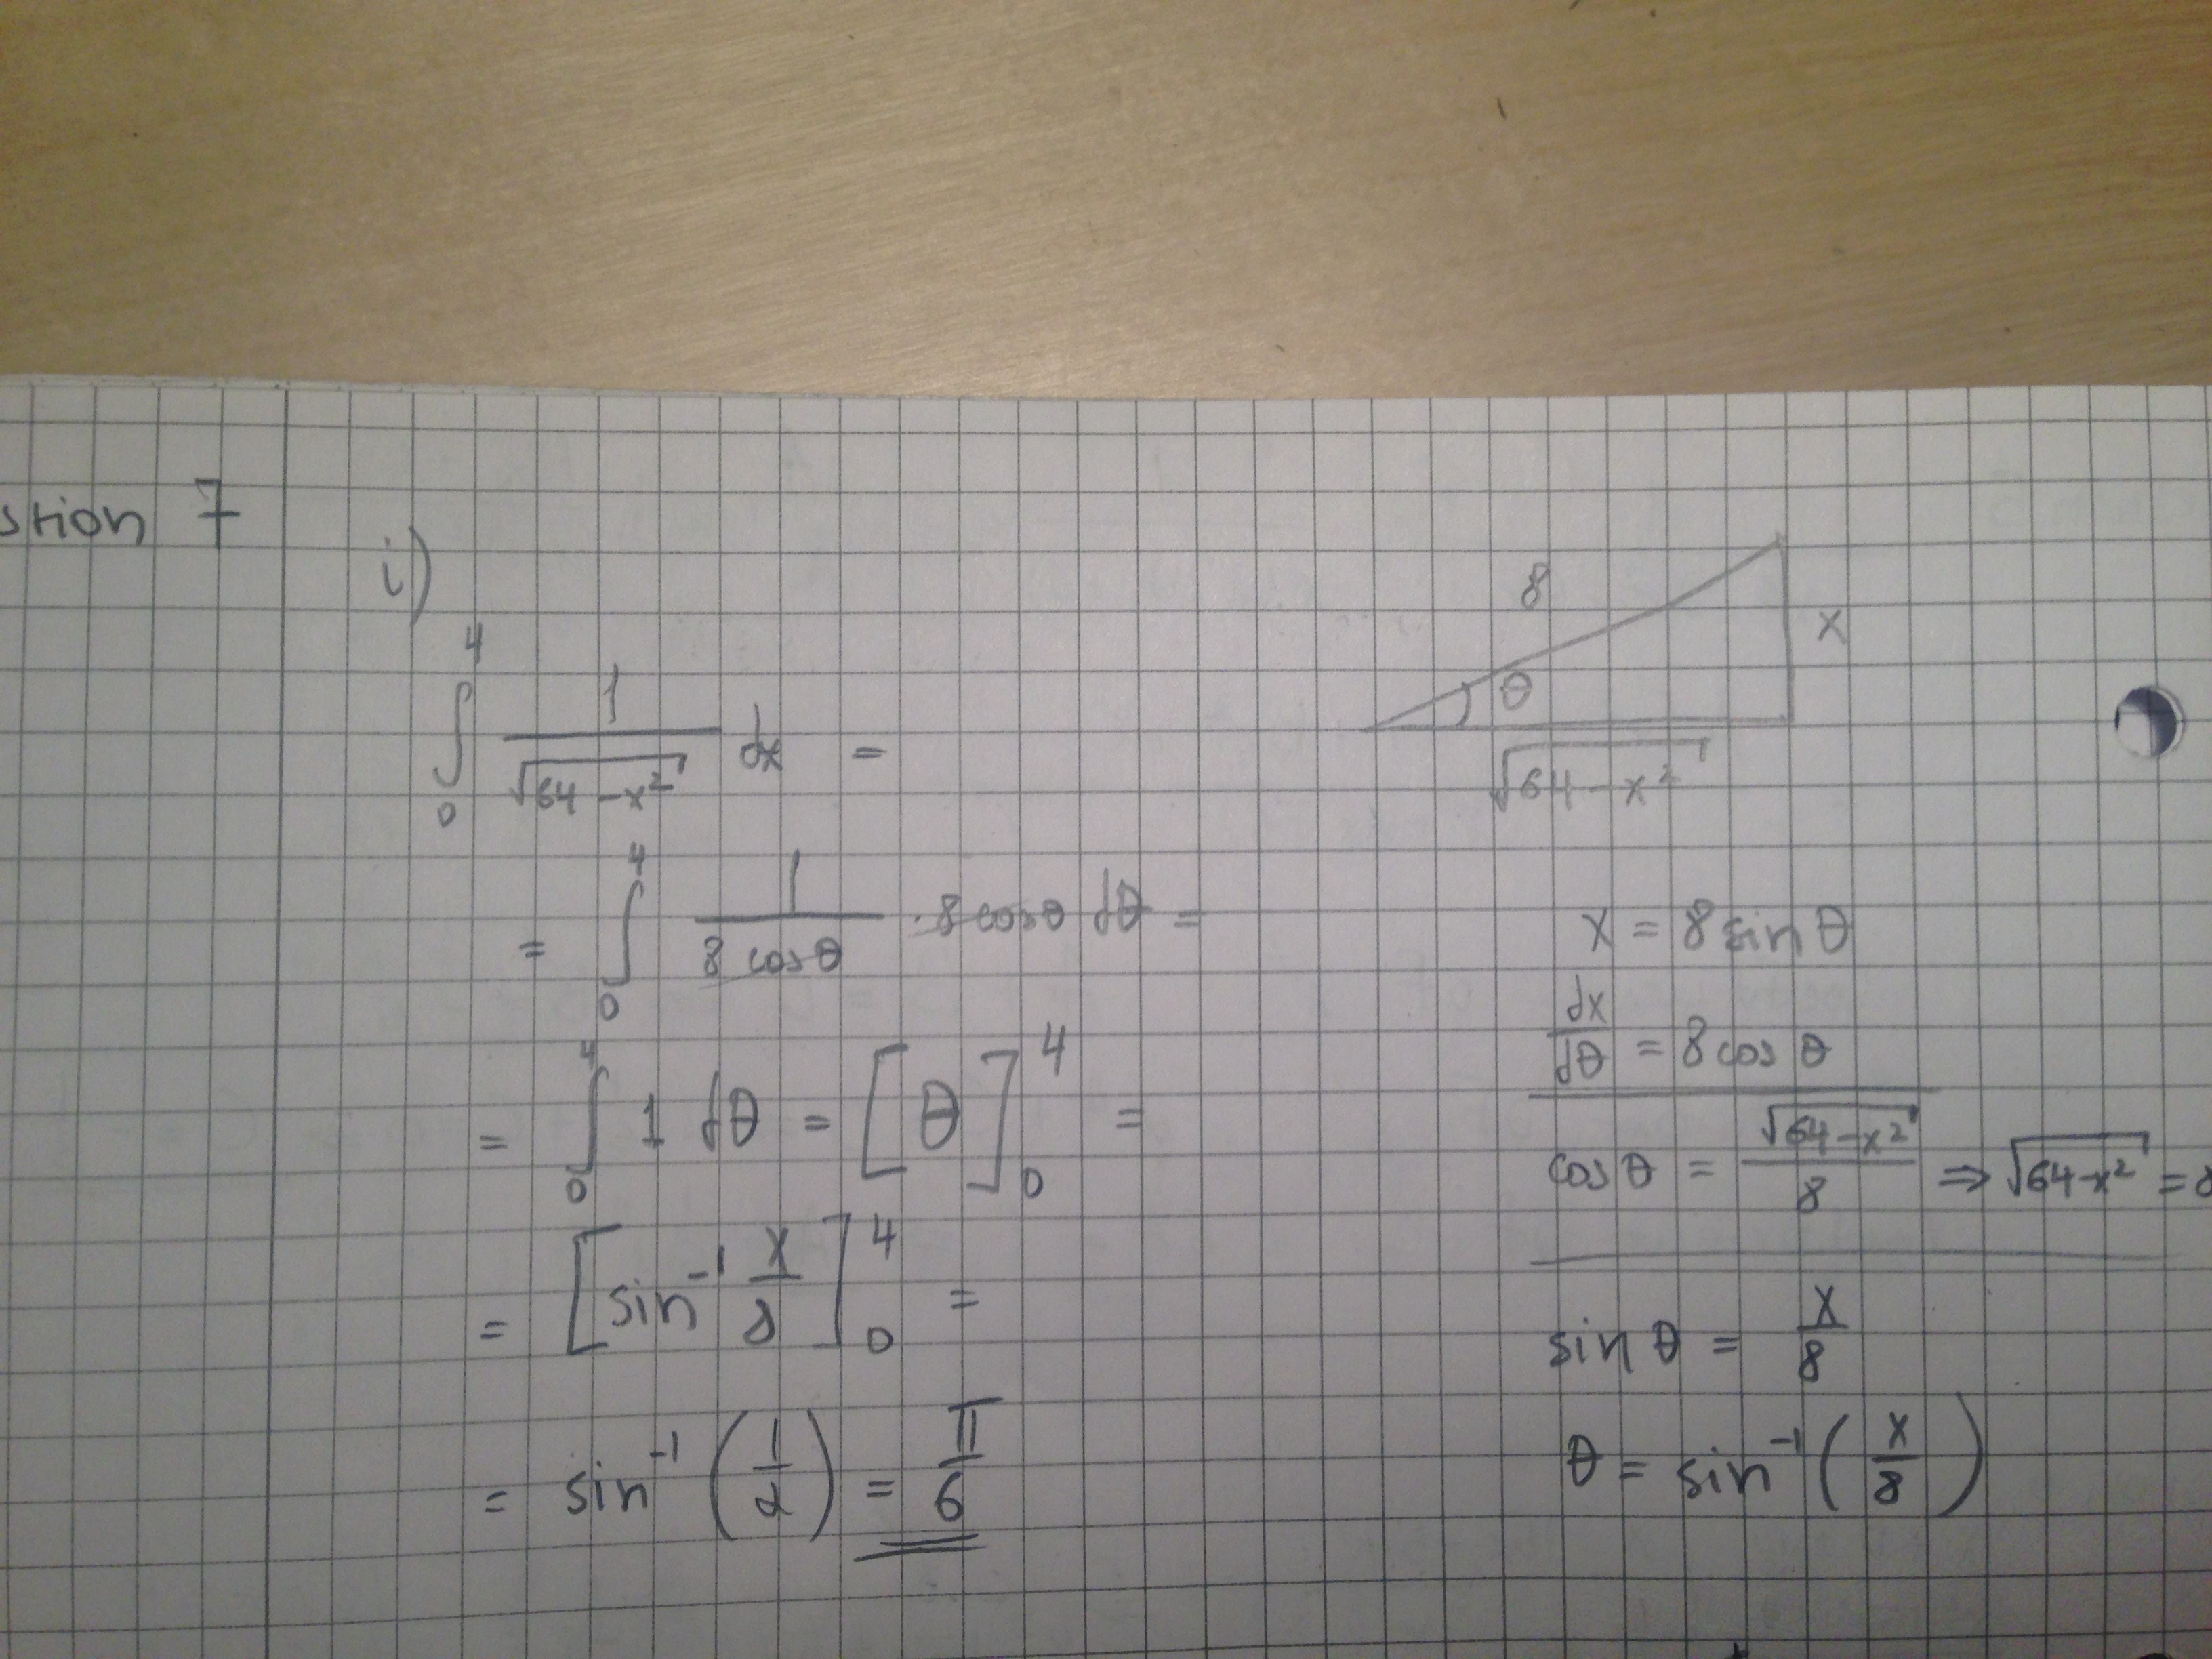 stion 7
i)
∫₀⁴ 1/√(64 - x²) dx =
= ∫₀⁴ 1/(8 cos θ) · 8 cos θ dθ =
= ∫₀⁴ 1 dθ = [θ]₀⁴ =
= [sin⁻¹ x/8]₀⁴ =
= sin⁻¹ (1/2) = π/6
8
x
θ
√(64 - x²)
x = 8 sin θ
dx/dθ = 8 cos θ
cos θ = √(64 - x²)/8 ⇒ √(64 - x²) = 8
sin θ = x/8
θ = sin⁻¹ (x/8)